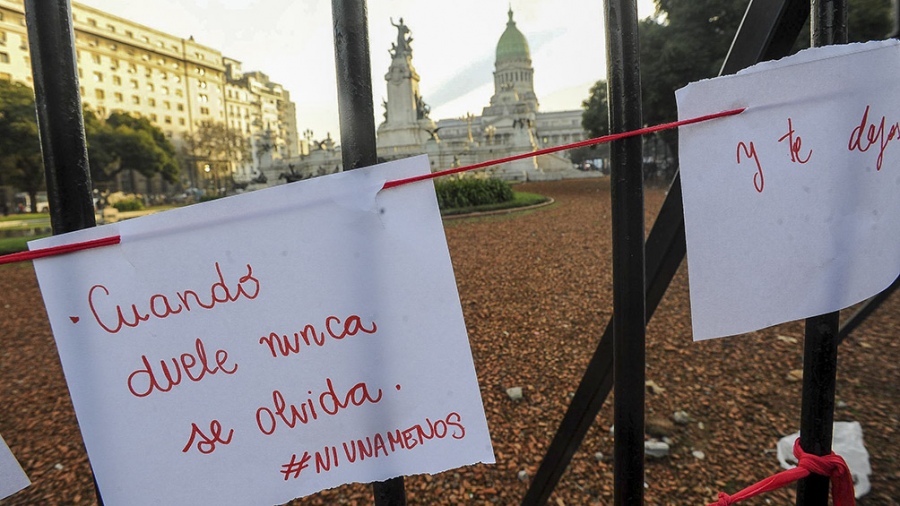 . Cuando
duele nunca
se olvida.
#NIUNAMENOS
y te dejas